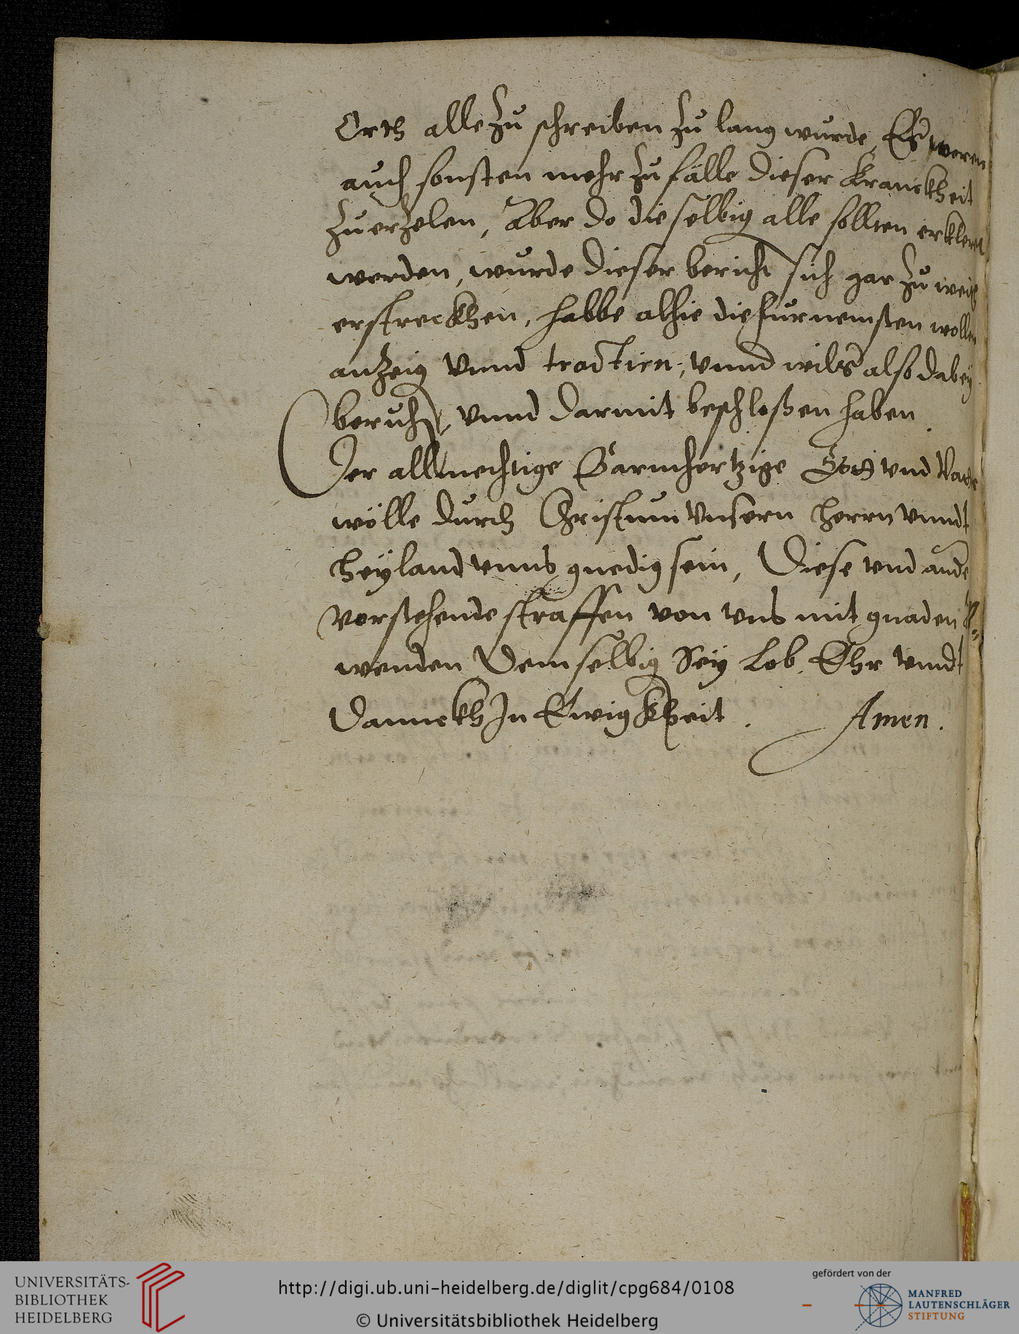 Orth alle zu schreiben zu lang wurde, Es weren
auch sonsten mehr zufälle dieser Kranckheit
zuerzelen, Aber do dieselbig alle sollten erklert
werden, wurde dieser bericht sich gar zu weit
erstreckhen, habbe alhie die furnemsten wollen
anzeig vnnd tractirn, vnnd wils also dabey
beruhen, vnnd darmit beschloßen haben.
Der allmechtige Barmhertzige Gott vnd Vater
wölle durch Christum Vnsern herrn vnndt
heyland vnns gnedig sein, Diese vnd ande
vorstehende straffen von vns mit gnaden
wenden Demselbig Sey Lob, Ehr vnndt
Dannckh In Ewigkheit. Amen.
UNIVERSITÄTS-
BIBLIOTHEK
HEIDELBERG
http://digi.ub.uni-heidelberg.de/diglit/cpg684/0108
© Universitätsbibliothek Heidelberg
gefördert von der
MANFRED
LAUTENSCHLÄGER
STIFTUNG